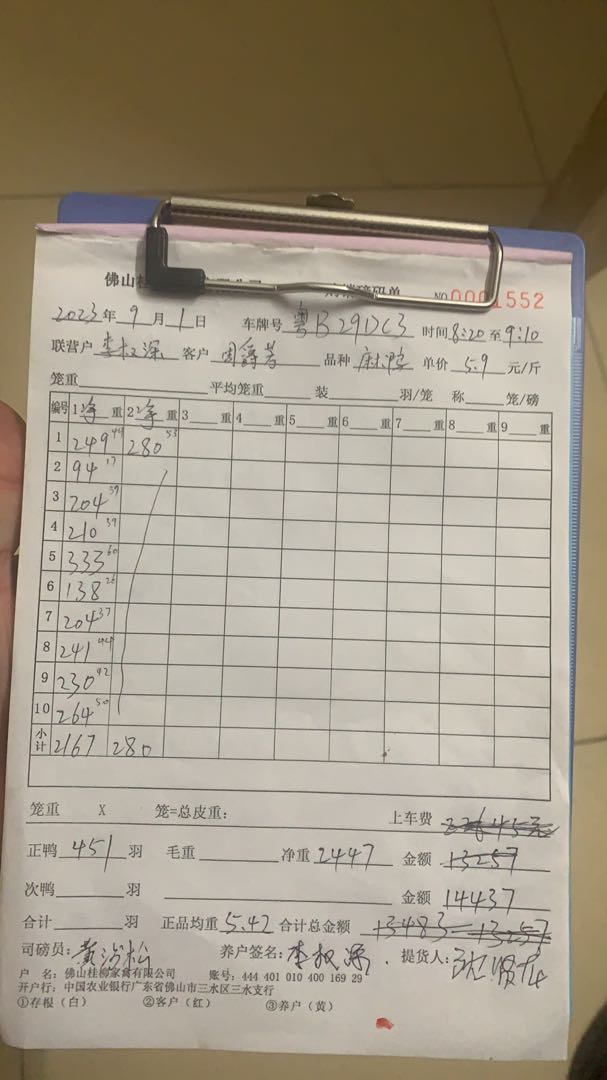 佛山桂 码单 NO 0001552
2023年9月1日 车牌号 粤B291DC3 时间8:20至9:10
联营户 李权深 客户 品种 麻鸭 单价 5.9 元/斤
笼重 平均笼重 装 羽/笼 称 笼/磅
编号 1净重 2净重 3 重 4 重 5 重 6 重 7 重 8 重 9 重
1 249 280 53
2 94 17
3 204 39
4 210 39
5 333 60
6 138
7 204 37
8 241 44
9 230 42
10 264 50
小计 2167 280
笼重 X 笼=总皮重: 上车费
正鸭 451 羽 毛重 净重 2447 金额 13257
次鸭 羽 金额 14437
合计 羽 正品均重 5.42 合计总金额 13483 13257
司磅员: 黄 松 养户签名: 李权深 提货人: 沈
户 名: 佛山桂柳家禽有限公司 账号: 444 401 010 400 169 29
开户行: 中国农业银行广东省佛山市三水区三水支行
①存根(白) ②客户(红) ③养户(黄)